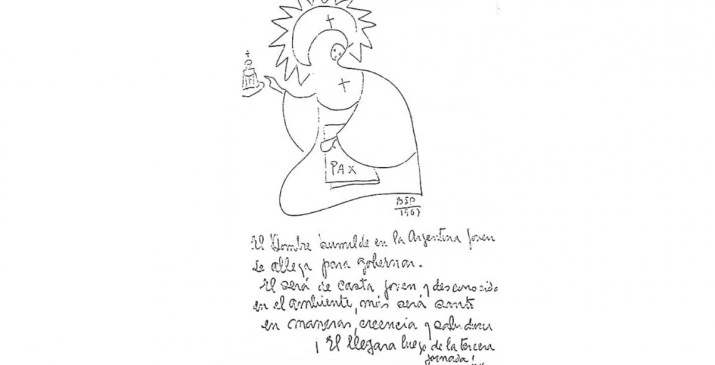 PAX
BSP
El Hombre humilde en la Argentina Joven
se allega para gobernar.
El será de casta joven y desconocido
en el ambiente, más será santo
en maneras, creencia y
¡ El llegara luego de la tercera
jornada!